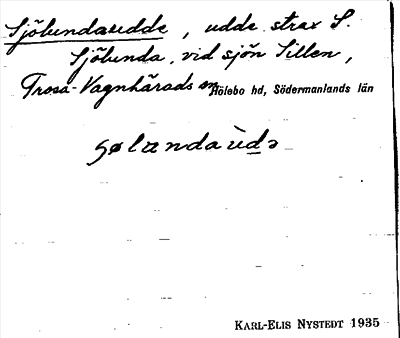 Sjölundaudde, udde strax S.
Sjölunda, vid sjön Sillen,
Trosa-Vagnhärads sn Hölebo hd, Södermanlands län
sølandaùdə
KARL-ELIS NYSTEDT 1935